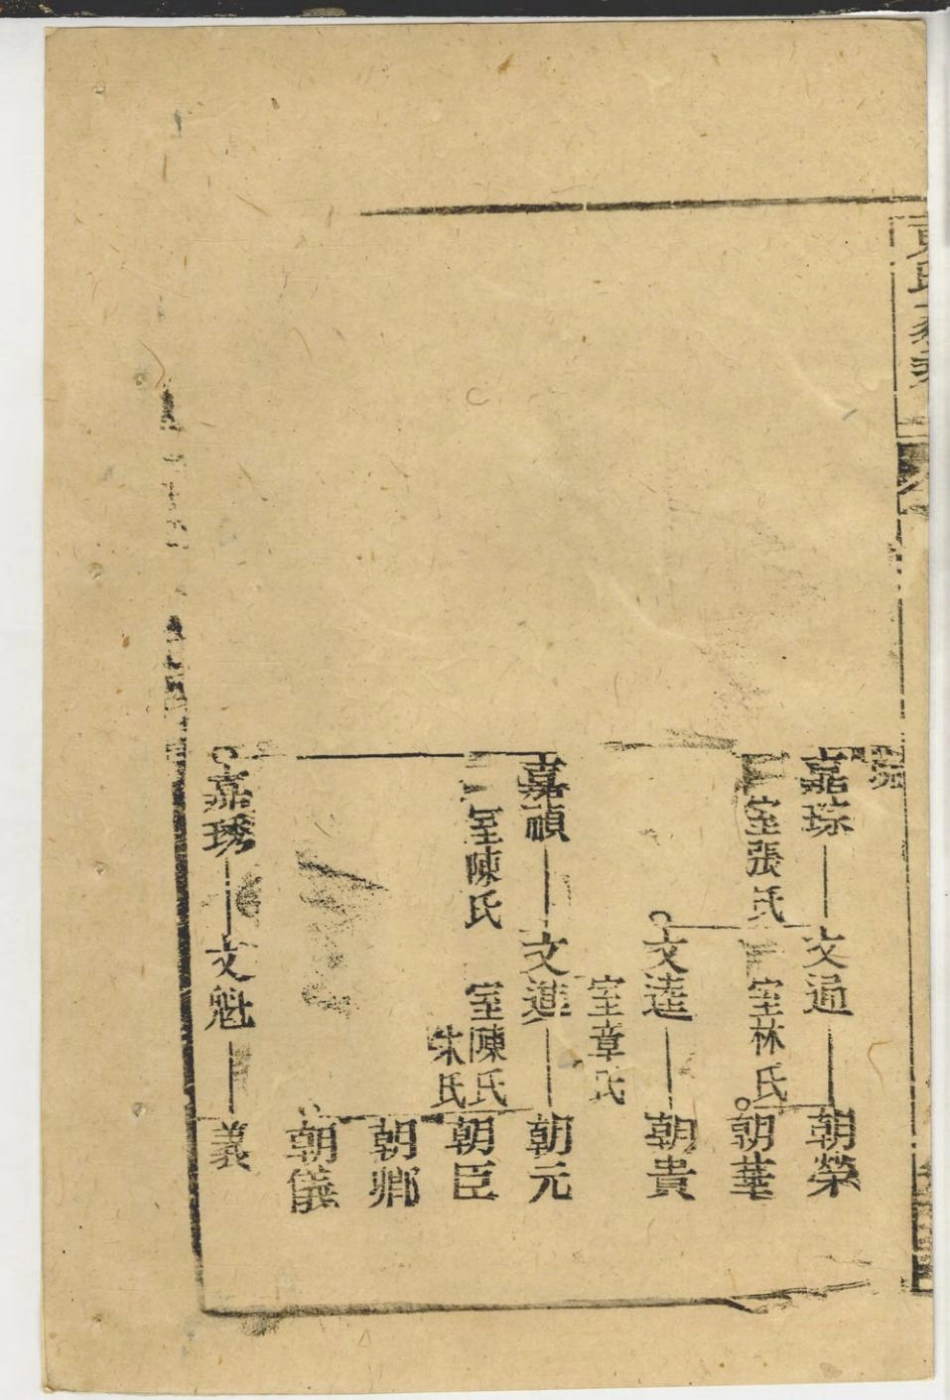 嘉琮
文逼
朝榮
室張氏
室林氏
朝華
文逵
朝貴
室章氏
嘉禎
文進
朝元
室陳氏
室陳氏
朱氏
朝臣
朝鄉
朝儀
嘉琇
文魁
義